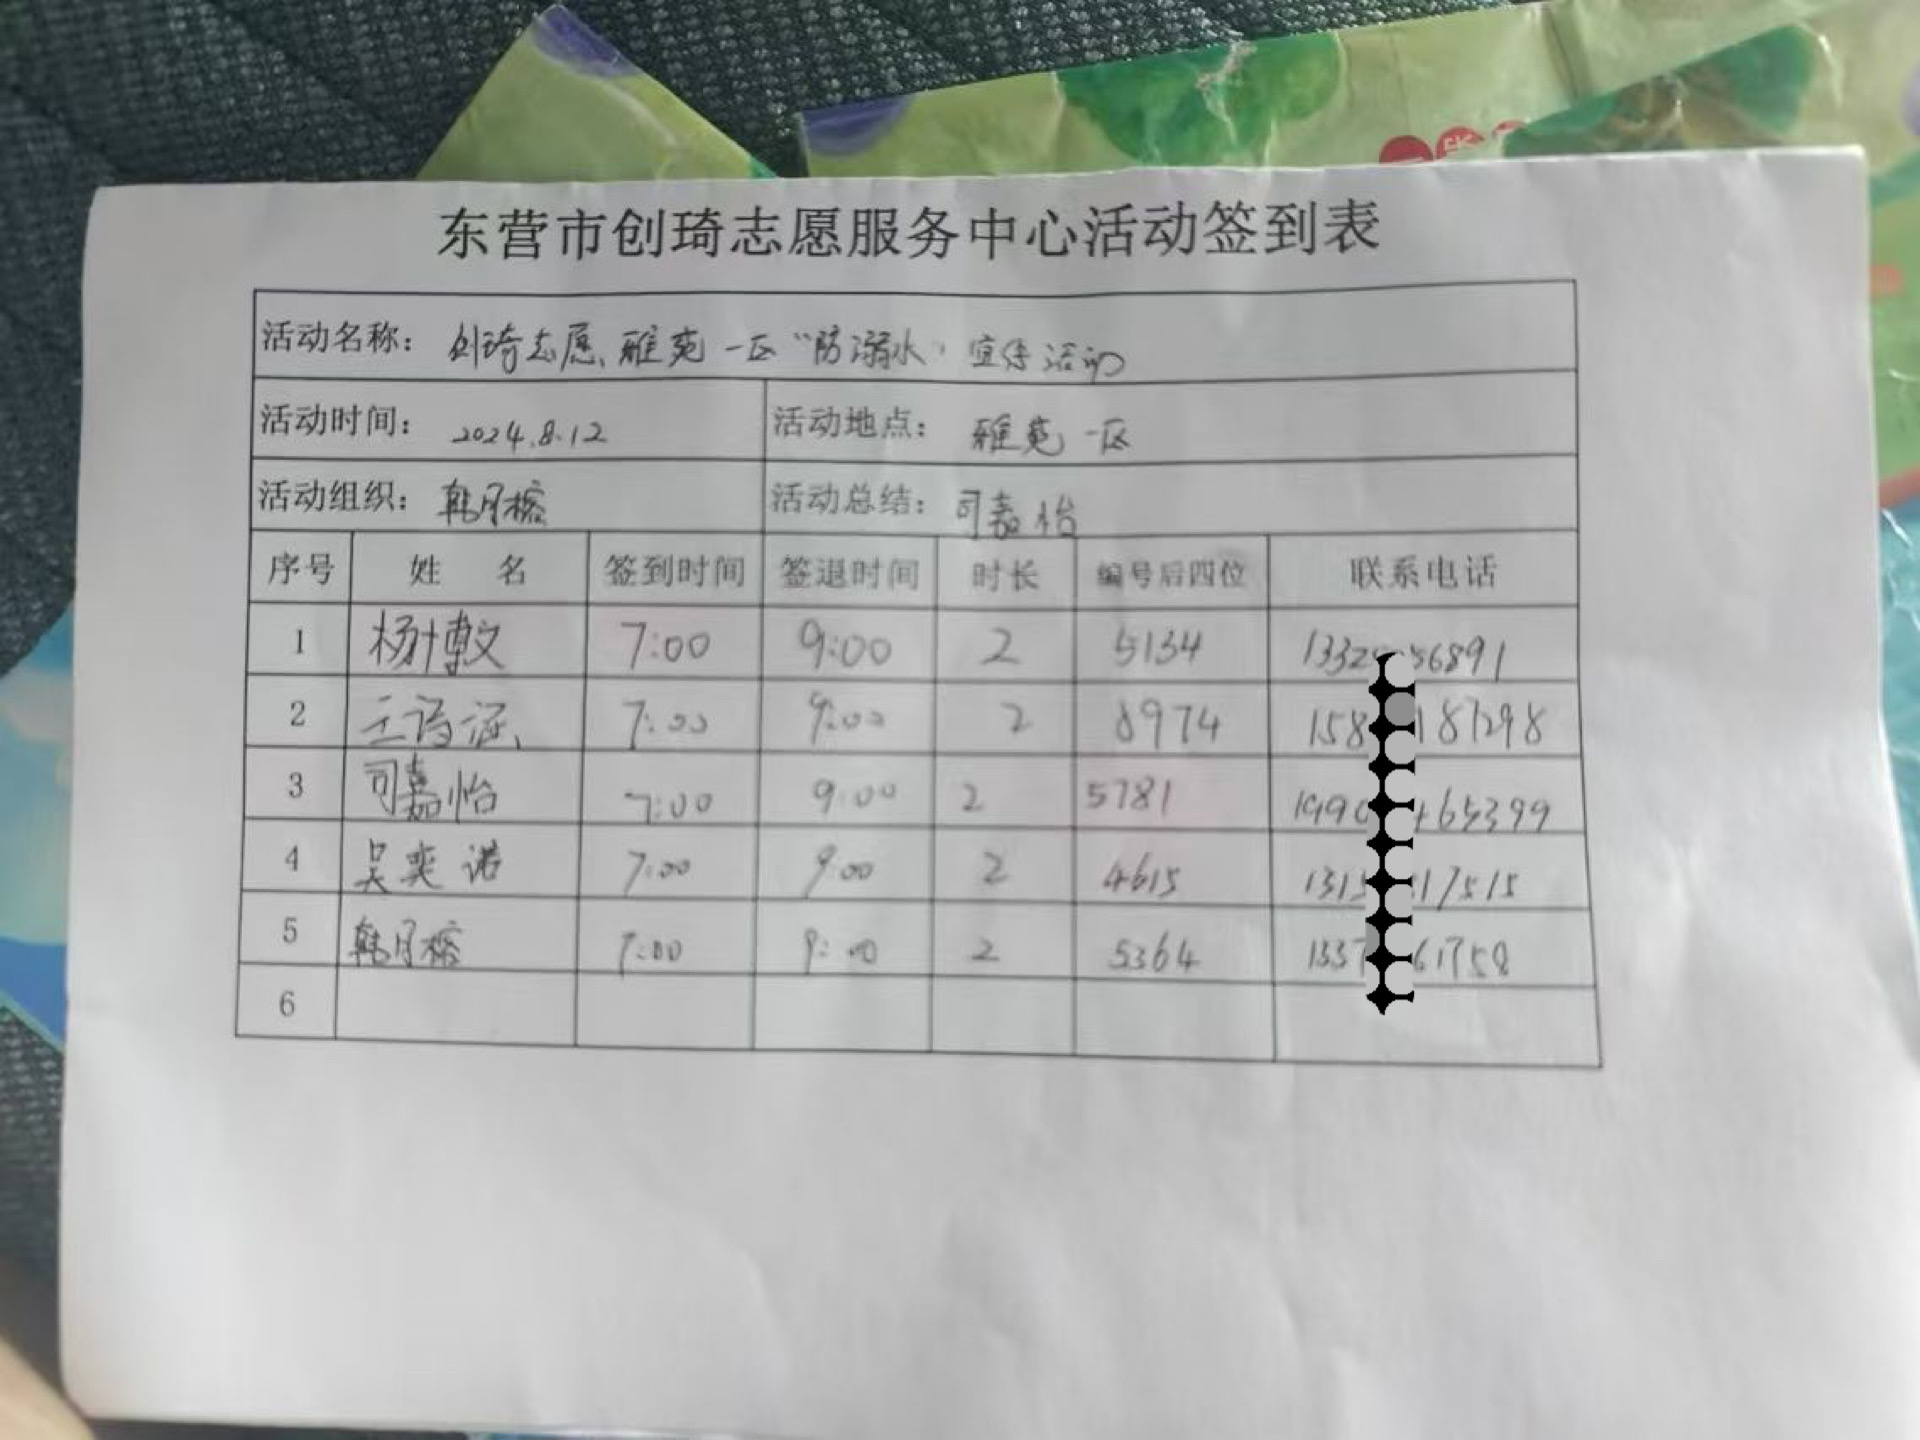 东营市创琦志愿服务中心活动签到表
活动名称： 创琦志愿、雅苑一区“防溺水”宣传活动
活动时间： 2024.8.12 活动地点： 雅苑一区
活动组织： 韩月榕 活动总结： 司嘉怡
序号 姓 名 签到时间 签退时间 时长 编号后四位 联系电话
1 杨博文 7:00 9:00 2 5134 1332 56891
2 王诗涵 7:00 9:00 2 8974 158 187298
3 司嘉怡 7:00 9:00 2 5781 199 465399
4 吴奕诺 7:00 9:00 2 4615 131 17515
5 韩月榕 7:00 9:00 2 5364 1337 61758
6